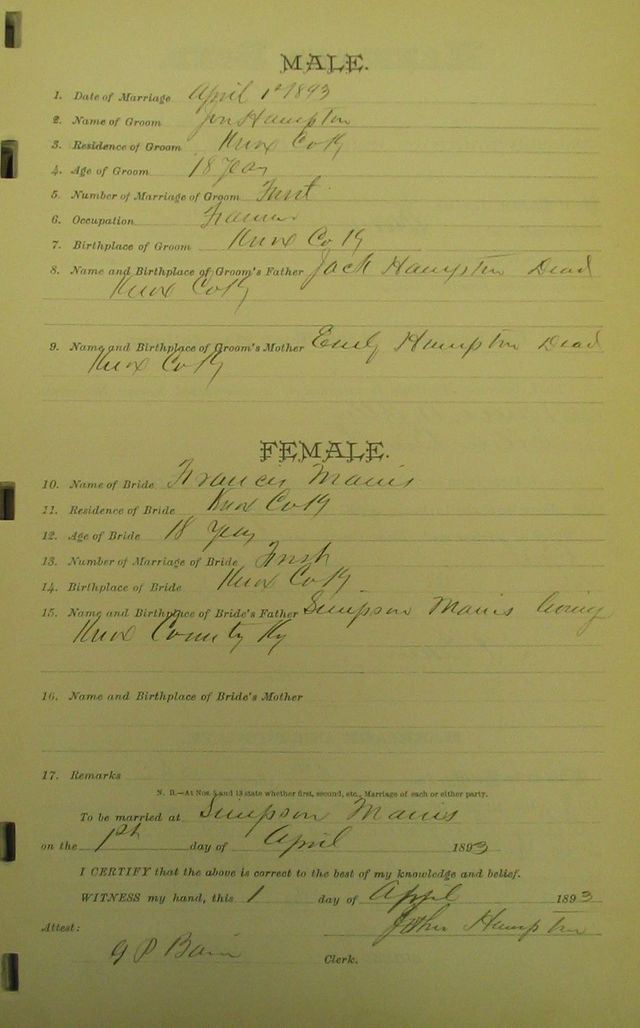 MALE.
1. Date of Marriage April 1st 1893
2. Name of Groom Jon Hampton
3. Residence of Groom Knox Co Ky
4. Age of Groom 18 Years
5. Number of Marriage of Groom First
6. Occupation Farmer
7. Birthplace of Groom Knox Co Ky
8. Name and Birthplace of Groom's Father Jack Hampton Dead
Knox Co Ky
9. Name and Birthplace of Groom's Mother Emily Hampton Dead
Knox Co Ky
FEMALE.
10. Name of Bride Francis Manis
11. Residence of Bride Knox Co Ky
12. Age of Bride 18 Years
13. Number of Marriage of Bride First
14. Birthplace of Bride Knox Co Ky
15. Name and Birthplace of Bride's Father Simpson Manis living
Knox County Ky
16. Name and Birthplace of Bride's Mother
17. Remarks
N. B.—At Nos. 5 and 13 state whether first, second, etc., Marriage of each or either party.
To be married at Simpson Manis
on the 1st day of April 1893
I CERTIFY that the above is correct to the best of my knowledge and belief.
WITNESS my hand, this 1 day of April 1893
John Hampton
Attest:
G P Bain Clerk.